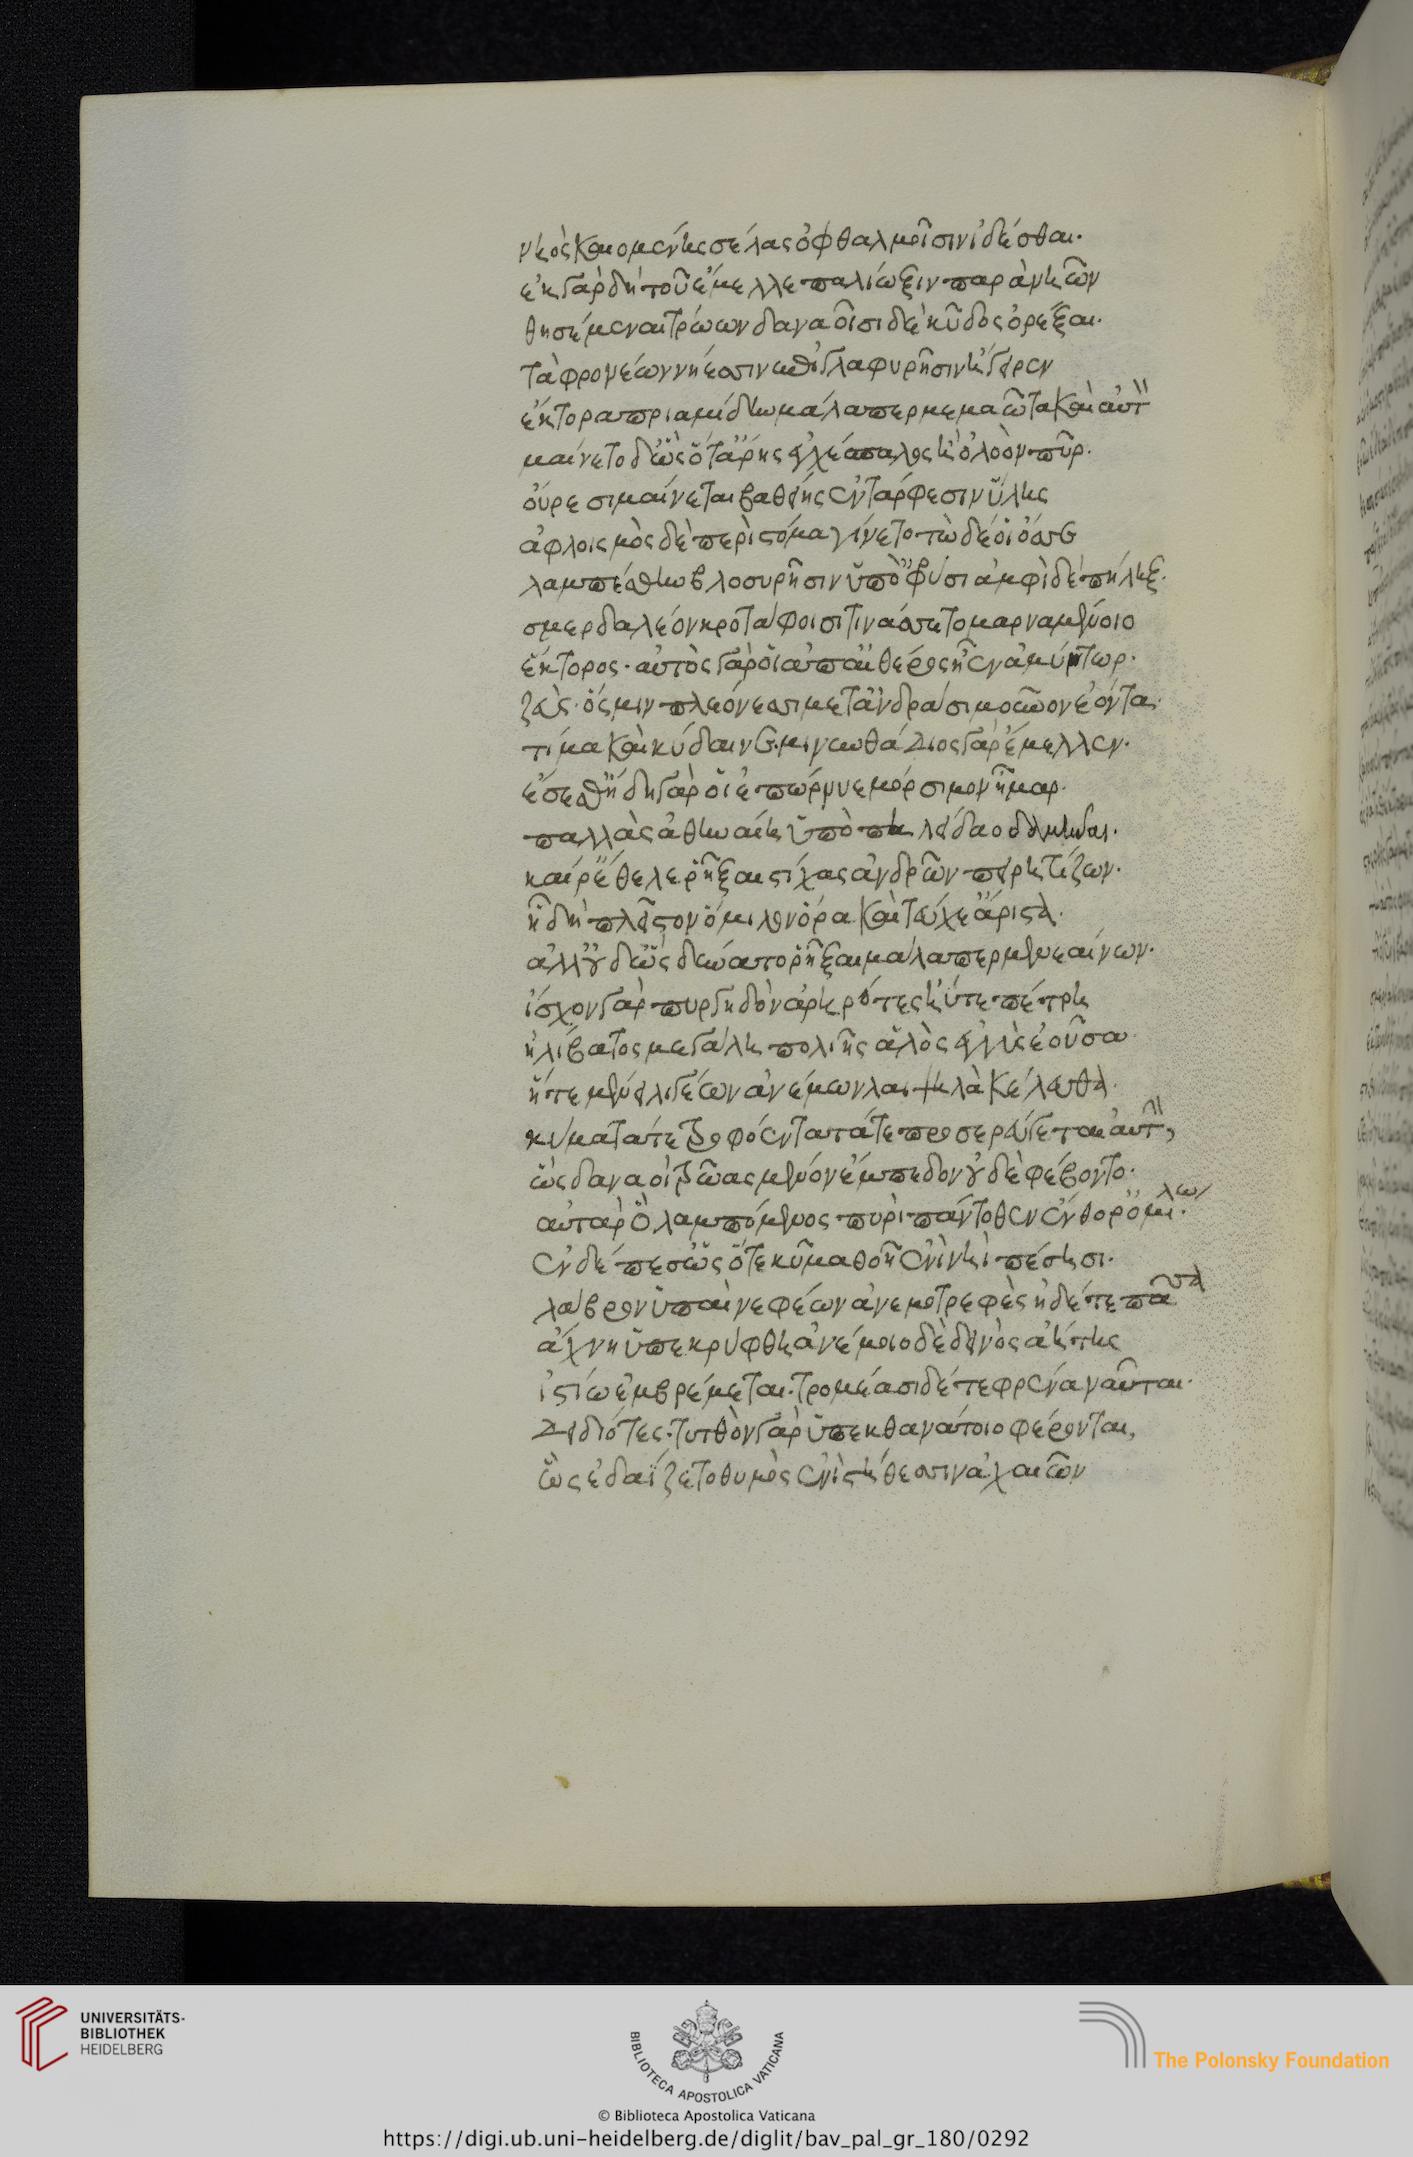 νηὸς καιομένης σέλας ὀφθαλμοῖσιν ἰδέσθαι.
ἐκ γὰρ δὴ τοῦ ἔμελλε παλίωξιν παρὰ νηῶν
θησέμεναι τρώων δαναοῖσι δὲ κῦδος ὀρέξαι.
τὰ φρονέων νήεσσιν ἐπὶ γλαφυρῆσιν ἔγειρεν
ἕκτορα πριαμίδην μάλα περ μεμαῶτα καὶ αὐτ
μαίνετο δ' ὡς ὅτ' ἄρης ἐγχέσπαλος ἢ ὀλοὸν πῦρ.
οὔρεσι μαίνεται βαθείης ἐν τάρφεσιν ὕλης
ἀφλοισμὸς δὲ περὶ στόμα γίνετο τὼ δέ οἱ ὄσσε
λαμπέσθην βλοσυρῆσιν ὑπ' ὀφρύσι ἀμφὶ δὲ πήληξ.
σμερδαλέον κροτάφοισι τινάσσετο μαρναμένοιο
ἕκτορος. αὐτὸς γάρ οἱ ἀπ' αἰθέρος ἦεν ἀμύντωρ.
ζεὺς. ὅς μιν πλεόνεσσι μετ' ἀνδράσι μοῦνον ἐόντα.
τίμα καὶ κύδαινε. μινυνθάδιος γὰρ ἔμελλεν.
ἔσεσθ' ἤδη γάρ οἱ ἐπώρνυε μόρσιμον ἦμαρ.
παλλὰς ἀθηναίη ὑπὸ πηλείδαο
καί ῥ' ἔθελε ῥῆξαι στίχας ἀνδρῶν πειρητίζων.
ἧ δὴ πλεῖστον ὅμιλον ὅρα καὶ τεύχε' ἄριστα.
ἀλλ' οὐδ' ὧς δύνατο ῥῆξαι μάλα περ μενεαίνων.
ἴσχον γὰρ πυργηδὸν ἀρηρότες ἠύτε πέτρη
ἠλίβατος μεγάλη πολιῆς ἁλὸς ἐγγὺς ἐοῦσα.
ἥ τε μένει λιγέων ἀνέμων λαιψηρὰ κέλευθα.
κύματά τε τροφόεντα τά τε προσερεύγεται αὐτ,
ὣς δαναοὶ τρῶας μένον ἔμπεδον οὐδὲ φέβοντο.
αὐτὰρ ὃ λαμπόμενος πυρὶ πάντοθεν ἔνθορ' ὁμίλω.
ἐν δ' ἔπεσ' ὡς ὅτε κῦμα θοῆ ἐν νηὶ πέσησι.
λάβρον ὑπαὶ νεφέων ἀνεμοτρεφὲς ἡ δέ τε πᾶσα
ἄχνη ὑπεκρύφθη ἀνέμοιο δὲ δεινὸς ἀήτης
ἱστίω ἐμβρέμεται. τρομέασι δέ τε φρένα ναῦται.
δειδιότες. τυτθὸν γὰρ ὑπεκ θανάτοιο φέρονται,
ὣς ἐδαΐζετο θυμὸς ἐνὶ στήθεσσιν ἀχαιῶν
UNIVERSITÄTS-
BIBLIOTHEK
HEIDELBERG
BIBLIOTECA APOSTOLICA VATICANA
The Polonsky Foundation
© Biblioteca Apostolica Vaticana
https://digi.ub.uni-heidelberg.de/diglit/bav_pal_gr_180/0292